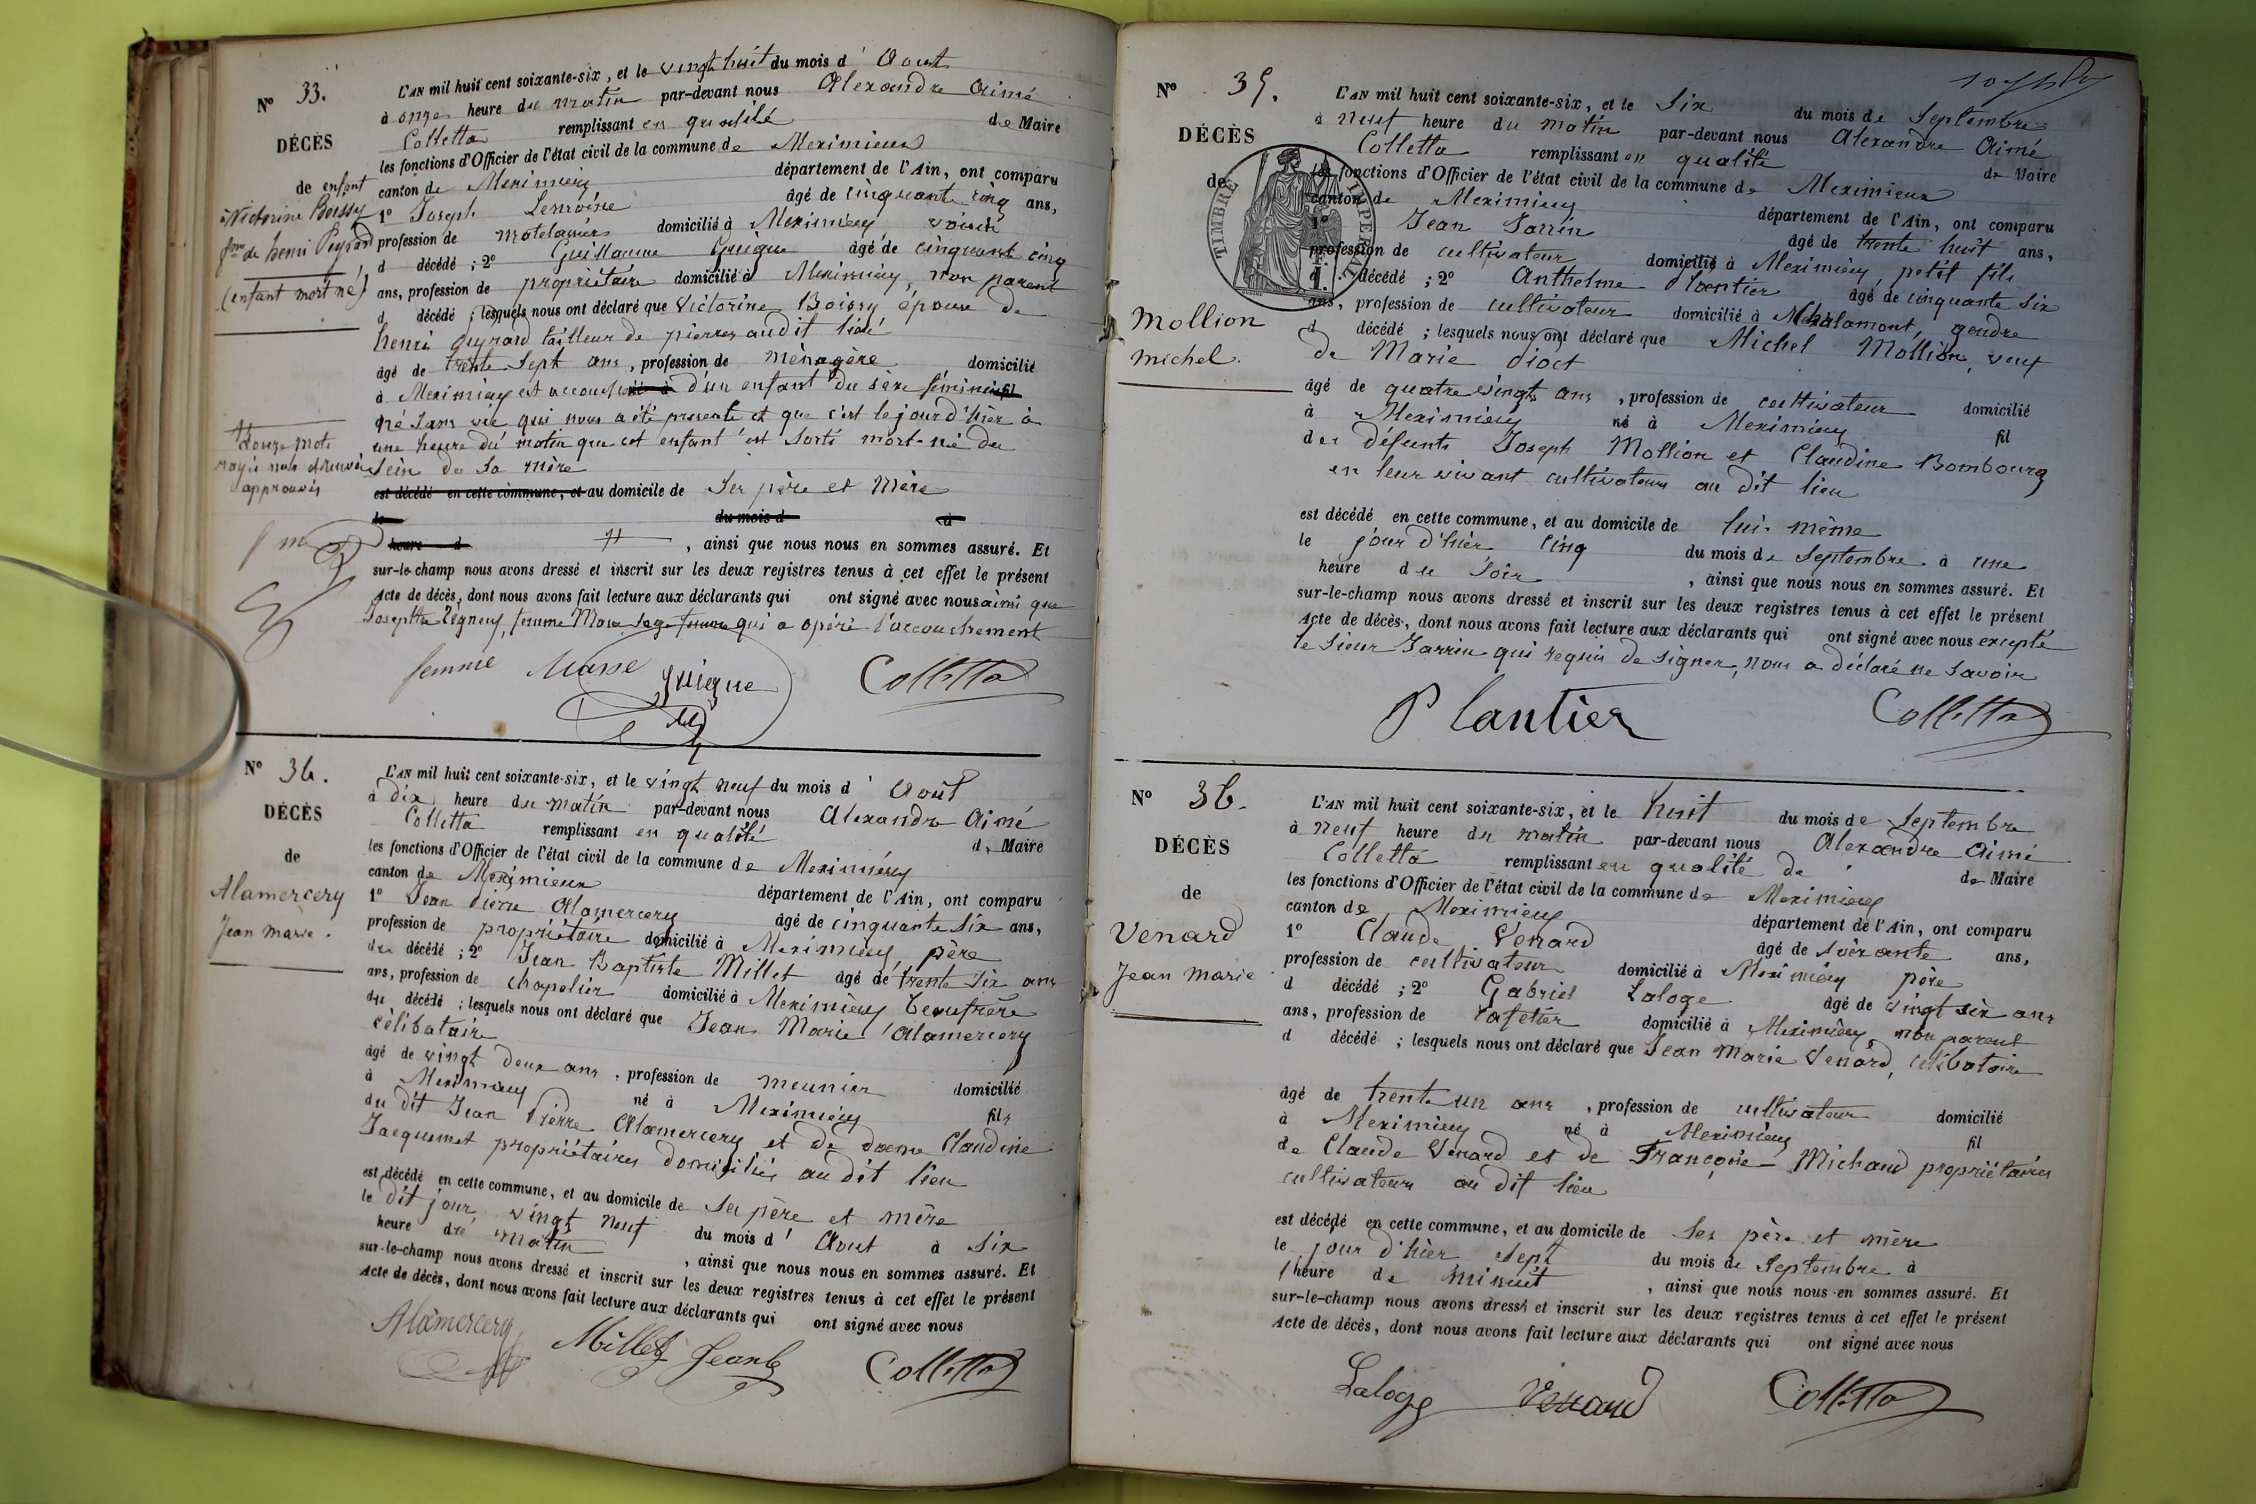 N° 33.
DÉCÈS
de enfant
à Victorine Boissy
fme de henri Peyrard
(enfant mort né)
L'AN mil huit cent soixante-six, et le vingt huit du mois d' Aout
à onze heure du matin par-devant nous Alexandre Aimé
Colletta remplissant en qualité de Maire
les fonctions d'Officier de l'état civil de la commune de Meximieux
canton de Meximieux département de l'Ain, ont comparu
1° Joseph Lemoine âgé de cinquante cinq ans,
profession de matelassier domicilié à Meximieux voisin
d décédé ; 2° Guillaume Guigue âgé de cinquante cinq
ans, profession de propriétaire domicilié à Meximieux, non parent
d décédé ; lesquels nous ont déclaré que Victorine Boissy épouse de
henri Peyrard tailleur de pierres audit lieu
âgé de trente sept ans, profession de ménagère domicilié
à Meximieux est accouchée d'un enfant du sexe féminin
né sans vie qui nous a été présenté et que c'est le jour d'hier à
une heure du matin que cet enfant est sorti mort-né du
sein de sa mère
est décédé en cette commune, et au domicile de ses père et mère
le du mois d à
heure d , ainsi que nous nous en sommes assuré. Et
sur-le-champ nous avons dressé et inscrit sur les deux registres tenus à cet effet le présent
Acte de décès, dont nous avons fait lecture aux déclarants qui ont signé avec nous ainsi que
Josephte femme Masse sage femme qui a opéré l'accouchement
douze mots
rayés nuls
approuvés
femme Masse Guigue Colletta
N° 34.
DÉCÈS
de
Alamercery
Jean Marie.
L'AN mil huit cent soixante-six, et le vingt neuf du mois d' Août
à dix heure du matin par-devant nous Alexandre Aimé
Colletta remplissant en qualité de Maire
les fonctions d'Officier de l'état civil de la commune de Meximieux
canton de Meximieux département de l'Ain, ont comparu
1° Jean Pierre Alamercery âgé de cinquante six ans,
profession de propriétaire domicilié à Meximieux, père
du décédé ; 2° Jean Baptiste Millet âgé de trente six ans
ans, profession de chapelier domicilié à Meximieux beaufrère
du décédé ; lesquels nous ont déclaré que Jean Marie Alamercery
célibataire
âgé de vingt deux ans, profession de meunier domicilié
à Meximieux né à Meximieux fils
du dit Jean Pierre Alamercery et de dame Claudine
Jacquemet propriétaires domiciliés au dit lieu
est décédé en cette commune, et au domicile de ses père et mère
le dit jour vingt neuf du mois d' Aout à six
heure du matin , ainsi que nous nous en sommes assuré. Et
sur-le-champ nous avons dressé et inscrit sur les deux registres tenus à cet effet le présent
Acte de décès, dont nous avons fait lecture aux déclarants qui ont signé avec nous
Alamercery Millet Jean Colletta
N° 35.
DÉCÈS
de
TIMBRE IMPERIAL
Mollion
michel.
L'AN mil huit cent soixante-six, et le Six du mois de Septembre
à neuf heure du matin par-devant nous Alexandre Aimé
Colletta remplissant en qualité de Maire
les fonctions d'Officier de l'état civil de la commune de Meximieux
canton de Meximieux département de l'Ain, ont comparu
1° Jean Jarrin âgé de trente huit ans,
profession de cultivateur domicilié à Meximieux, petit fils
d décédé ; 2° Anthelme Plantier âgé de cinquante six
ans, profession de cultivateur domicilié à Chalamont, gendre
d décédé ; lesquels nous ont déclaré que Michel Mollion, veuf
de Marie Dioct
âgé de quatre vingts ans, profession de cultivateur domicilié
à Meximieux né à Meximieux fil
des défunts Joseph Mollion et Claudine Bombourg
en leur vivant cultivateurs au dit lieu
est décédé en cette commune, et au domicile de lui-même
le jour d'hier cinq du mois de Septembre à une
heure du soir , ainsi que nous nous en sommes assuré. Et
sur-le-champ nous avons dressé et inscrit sur les deux registres tenus à cet effet le présent
Acte de décès, dont nous avons fait lecture aux déclarants qui ont signé avec nous excepté
le sieur Jarrin qui requis de signer, nous a déclaré ne savoir
Plantier Colletta
N° 36.
DÉCÈS
de
Venard
Jean Marie
L'AN mil huit cent soixante-six, et le huit du mois de Septembre
à neuf heure du matin par-devant nous Alexandre Aimé
Colletta remplissant en qualité de de Maire
les fonctions d'Officier de l'état civil de la commune de Meximieux
canton de Meximieux département de l'Ain, ont comparu
1° Claude Venard âgé de soixante ans,
profession de cultivateur domicilié à Meximieux père
d décédé ; 2° Gabriel Laloge âgé de vingt six ans
ans, profession de cafetier domicilié à Meximieux, non parent
d décédé ; lesquels nous ont déclaré que Jean Marie Venard, célibataire
âgé de trente un ans, profession de cultivateur domicilié
à Meximieux né à Meximieux fil
de Claude Venard et de Françoise Michaud propriétaires
cultivateurs au dit lieu
est décédé en cette commune, et au domicile de ses père et mère
le jour d'hier sept du mois de Septembre à
heure de minuit , ainsi que nous nous en sommes assuré. Et
sur-le-champ nous avons dressé et inscrit sur les deux registres tenus à cet effet le présent
Acte de décès, dont nous avons fait lecture aux déclarants qui ont signé avec nous
Laloge Venard Colletta